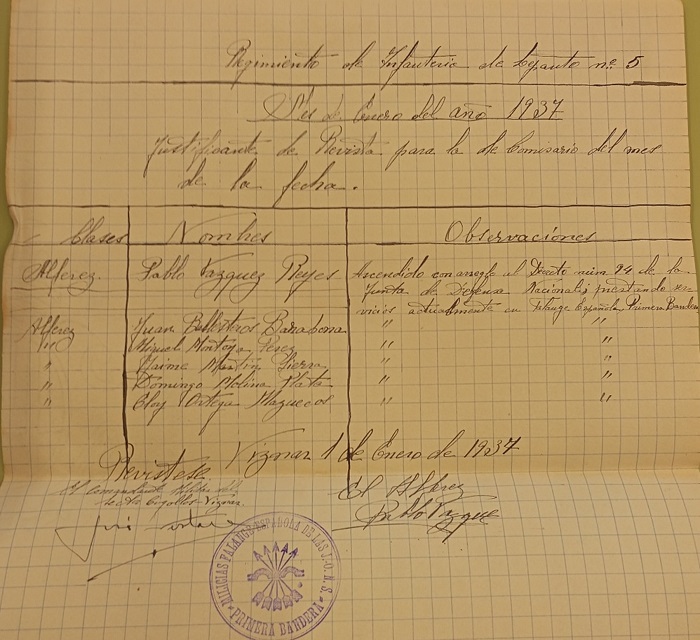 Regimiento de Infanteria de Lepanto nº 5
Mes de Enero del año 1937
Justificante de Revista para la de Comisario del mes
de la fecha.
Clases Nombres Observaciones
Alferez. Pablo Vazquez Reyes Ascendido con arreglo al Decreto núm. 94 de la
Junta de Defensa Nacional; prestando ser-
vicios actualmente en Falange Española Primera Bandera
Alferez Juan Ballesteros Barahona " "
" Miguel Montoya Perez " "
" Jaime Martin Sierra " "
" Domingo Molina Plata " "
" Eloy Ortega Mazuecos " "
Viznar 1 de Enero de 1937
Revistese
El Comandante Militar del
Sector Cogollos-Viznar.
El Alferez
Pablo Vazquez
José
MILICIAS FALANGE ESPAÑOLA DE LAS J.O.N.S.
PRIMERA BANDERA